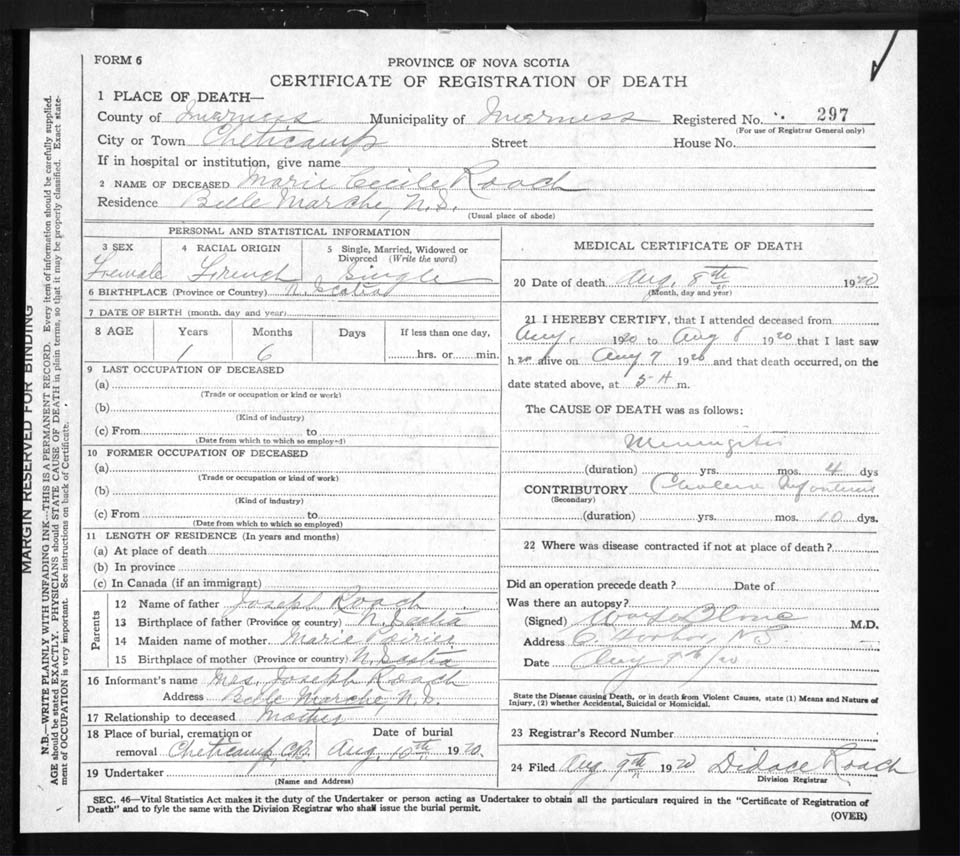 FORM 6
PROVINCE OF NOVA SCOTIA
CERTIFICATE OF REGISTRATION OF DEATH
1 PLACE OF DEATH—
County of Inverness Municipality of Inverness Registered No. 297
(For use of Registrar General only)
City or Town Cheticamp Street House No.
If in hospital or institution, give name
2 NAME OF DECEASED Marie Cecile Roach
Residence Belle Marche, N.S.
(Usual place of abode)
PERSONAL AND STATISTICAL INFORMATION
3 SEX 4 RACIAL ORIGIN 5 Single, Married, Widowed or Divorced (Write the word)
Female French Single
6 BIRTHPLACE (Province or Country) N. Scotia
7 DATE OF BIRTH (month, day and year)
8 AGE Years Months Days If less than one day,
1 6 hrs. or min.
9 LAST OCCUPATION OF DECEASED
(a)
(Trade or occupation or kind or work)
(b)
(Kind of industry)
(c) From to
(Date from which to which so employed)
10 FORMER OCCUPATION OF DECEASED
(a)
(Trade or occupation or kind of work)
(b)
(Kind of industry)
(c) From to
(Date from which to which so employed)
11 LENGTH OF RESIDENCE (In years and months)
(a) At place of death
(b) In province
(c) In Canada (if an immigrant)
Parents
12 Name of father Joseph Roach
13 Birthplace of father (Province or country) N. Scotia
14 Maiden name of mother Marie Poirier
15 Birthplace of mother (Province or country) N. Scotia
16 Informant's name Mrs. Joseph Roach
Address Belle Marche, N.S.
17 Relationship to deceased Mother
18 Place of burial, cremation or Date of burial
removal Cheticamp, C.B. Aug. 10th 1920.
19 Undertaker
(Name and Address)
MEDICAL CERTIFICATE OF DEATH
20 Date of death Aug. 8th 1920
(Month, day and year)
21 I HEREBY CERTIFY, that I attended deceased from
Aug. 1920 to Aug 8 1920 that I last saw
h alive on Aug 7 1920 and that death occurred, on the
date stated above, at 5 A m.
The CAUSE OF DEATH was as follows:
Meningitis
(duration) yrs. mos. 4 dys
CONTRIBUTORY Cholera Infantum
(Secondary)
(duration) yrs. mos. 10 dys.
22 Where was disease contracted if not at place of death?
Did an operation precede death? Date of
Was there an autopsy?
(Signed) M.D.
Address
Date Aug 9th/20
State the Disease causing Death, or in death from Violent Causes, state (1) Means and Nature of
Injury, (2) whether Accidental, Suicidal or Homicidal.
23 Registrar's Record Number
24 Filed Aug. 9th 1920 Didace Roach
Division Registrar
SEC. 46—Vital Statistics Act makes it the duty of the Undertaker or person acting as Undertaker to obtain all the particulars required in the "Certificate of Registration of
Death" and to fyle the same with the Division Registrar who shall issue the burial permit.
(OVER)
MARGIN RESERVED FOR BINDING
N.B.—WRITE PLAINLY WITH UNFADING INK—THIS IS A PERMANENT RECORD. Every item of information should be carefully supplied.
AGE should be stated EXACTLY. PHYSICIANS should STATE CAUSE OF DEATH in plain terms, so that it may be properly classified. Exact state-
ment of OCCUPATION is very important. See instructions on back of Certificate.